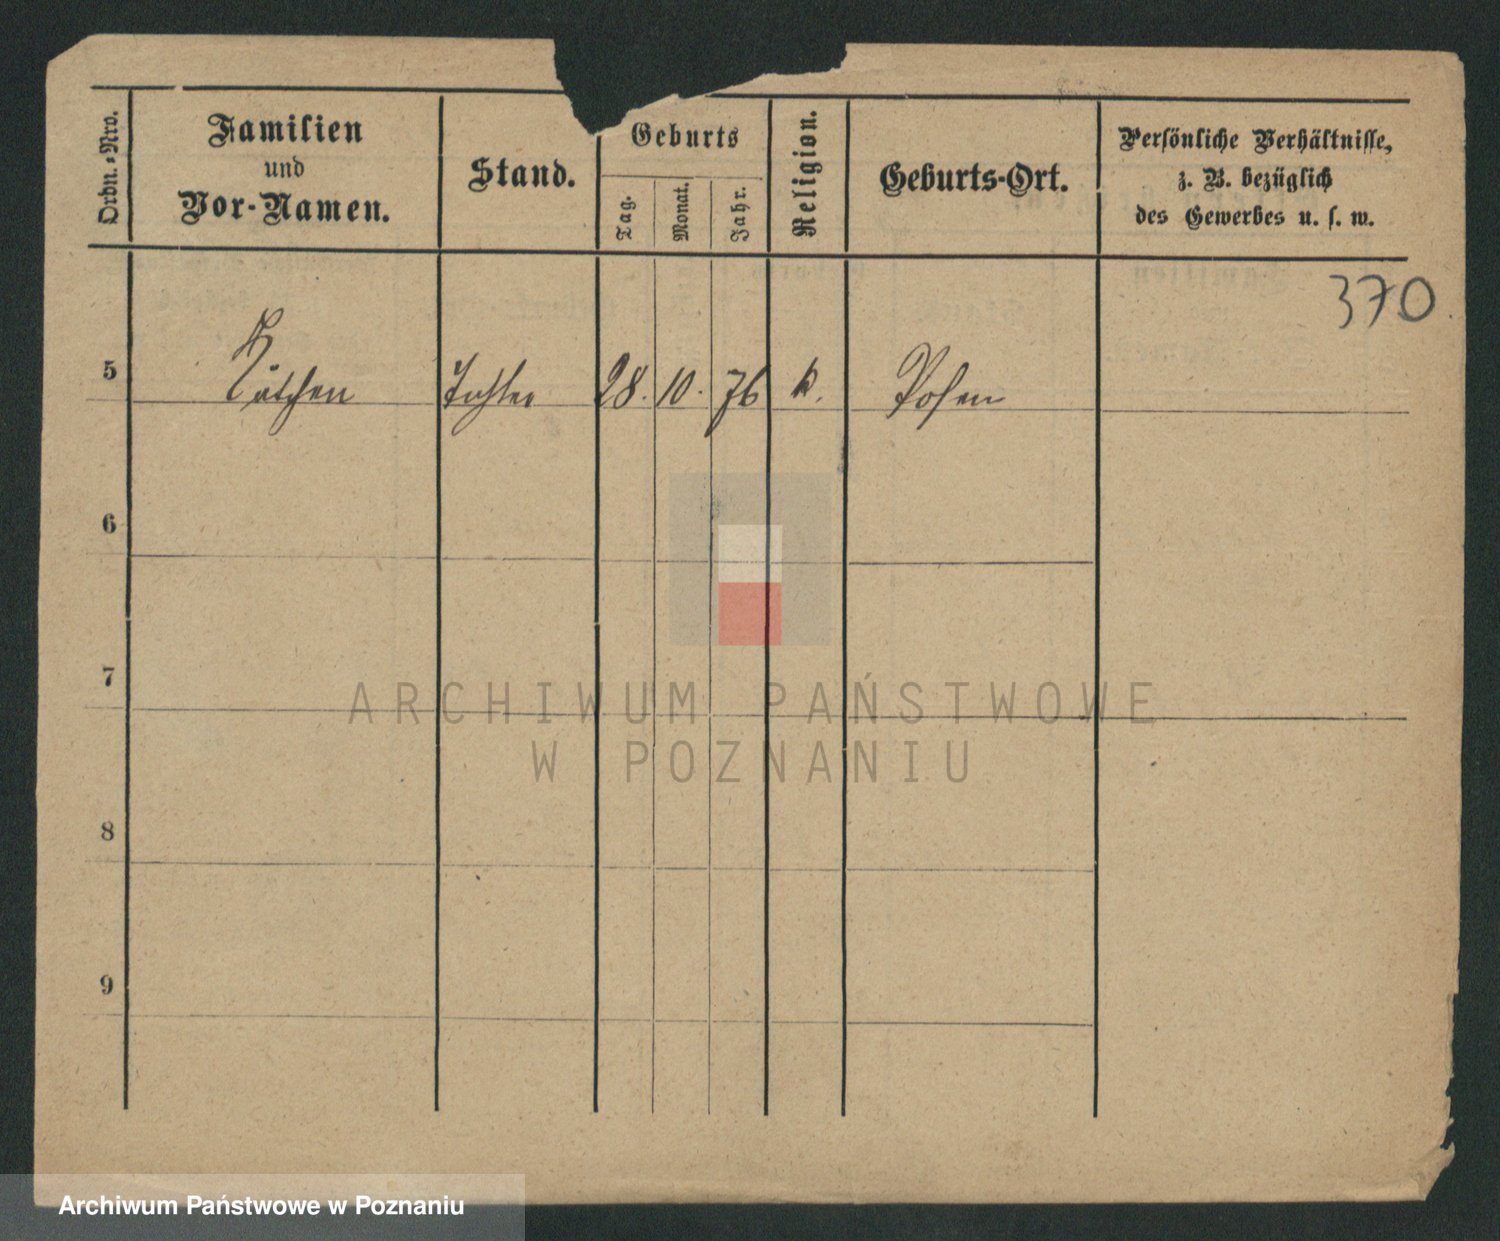 Ordn.-Nro.
Familien
und
Vor-Namen.
Stand.
Geburts
Tag.
Monat.
Jahr.
Religion.
Geburts-Ort.
Persönliche Verhältnisse,
z. B. bezüglich
des Gewerbes u. s. w.
370
5 Käthchen Tochter 28. 10. 76 k. Posen
6
7
8
9
ARCHIWUM PAŃSTWOWE
W POZNANIU
Archiwum Państwowe w Poznaniu